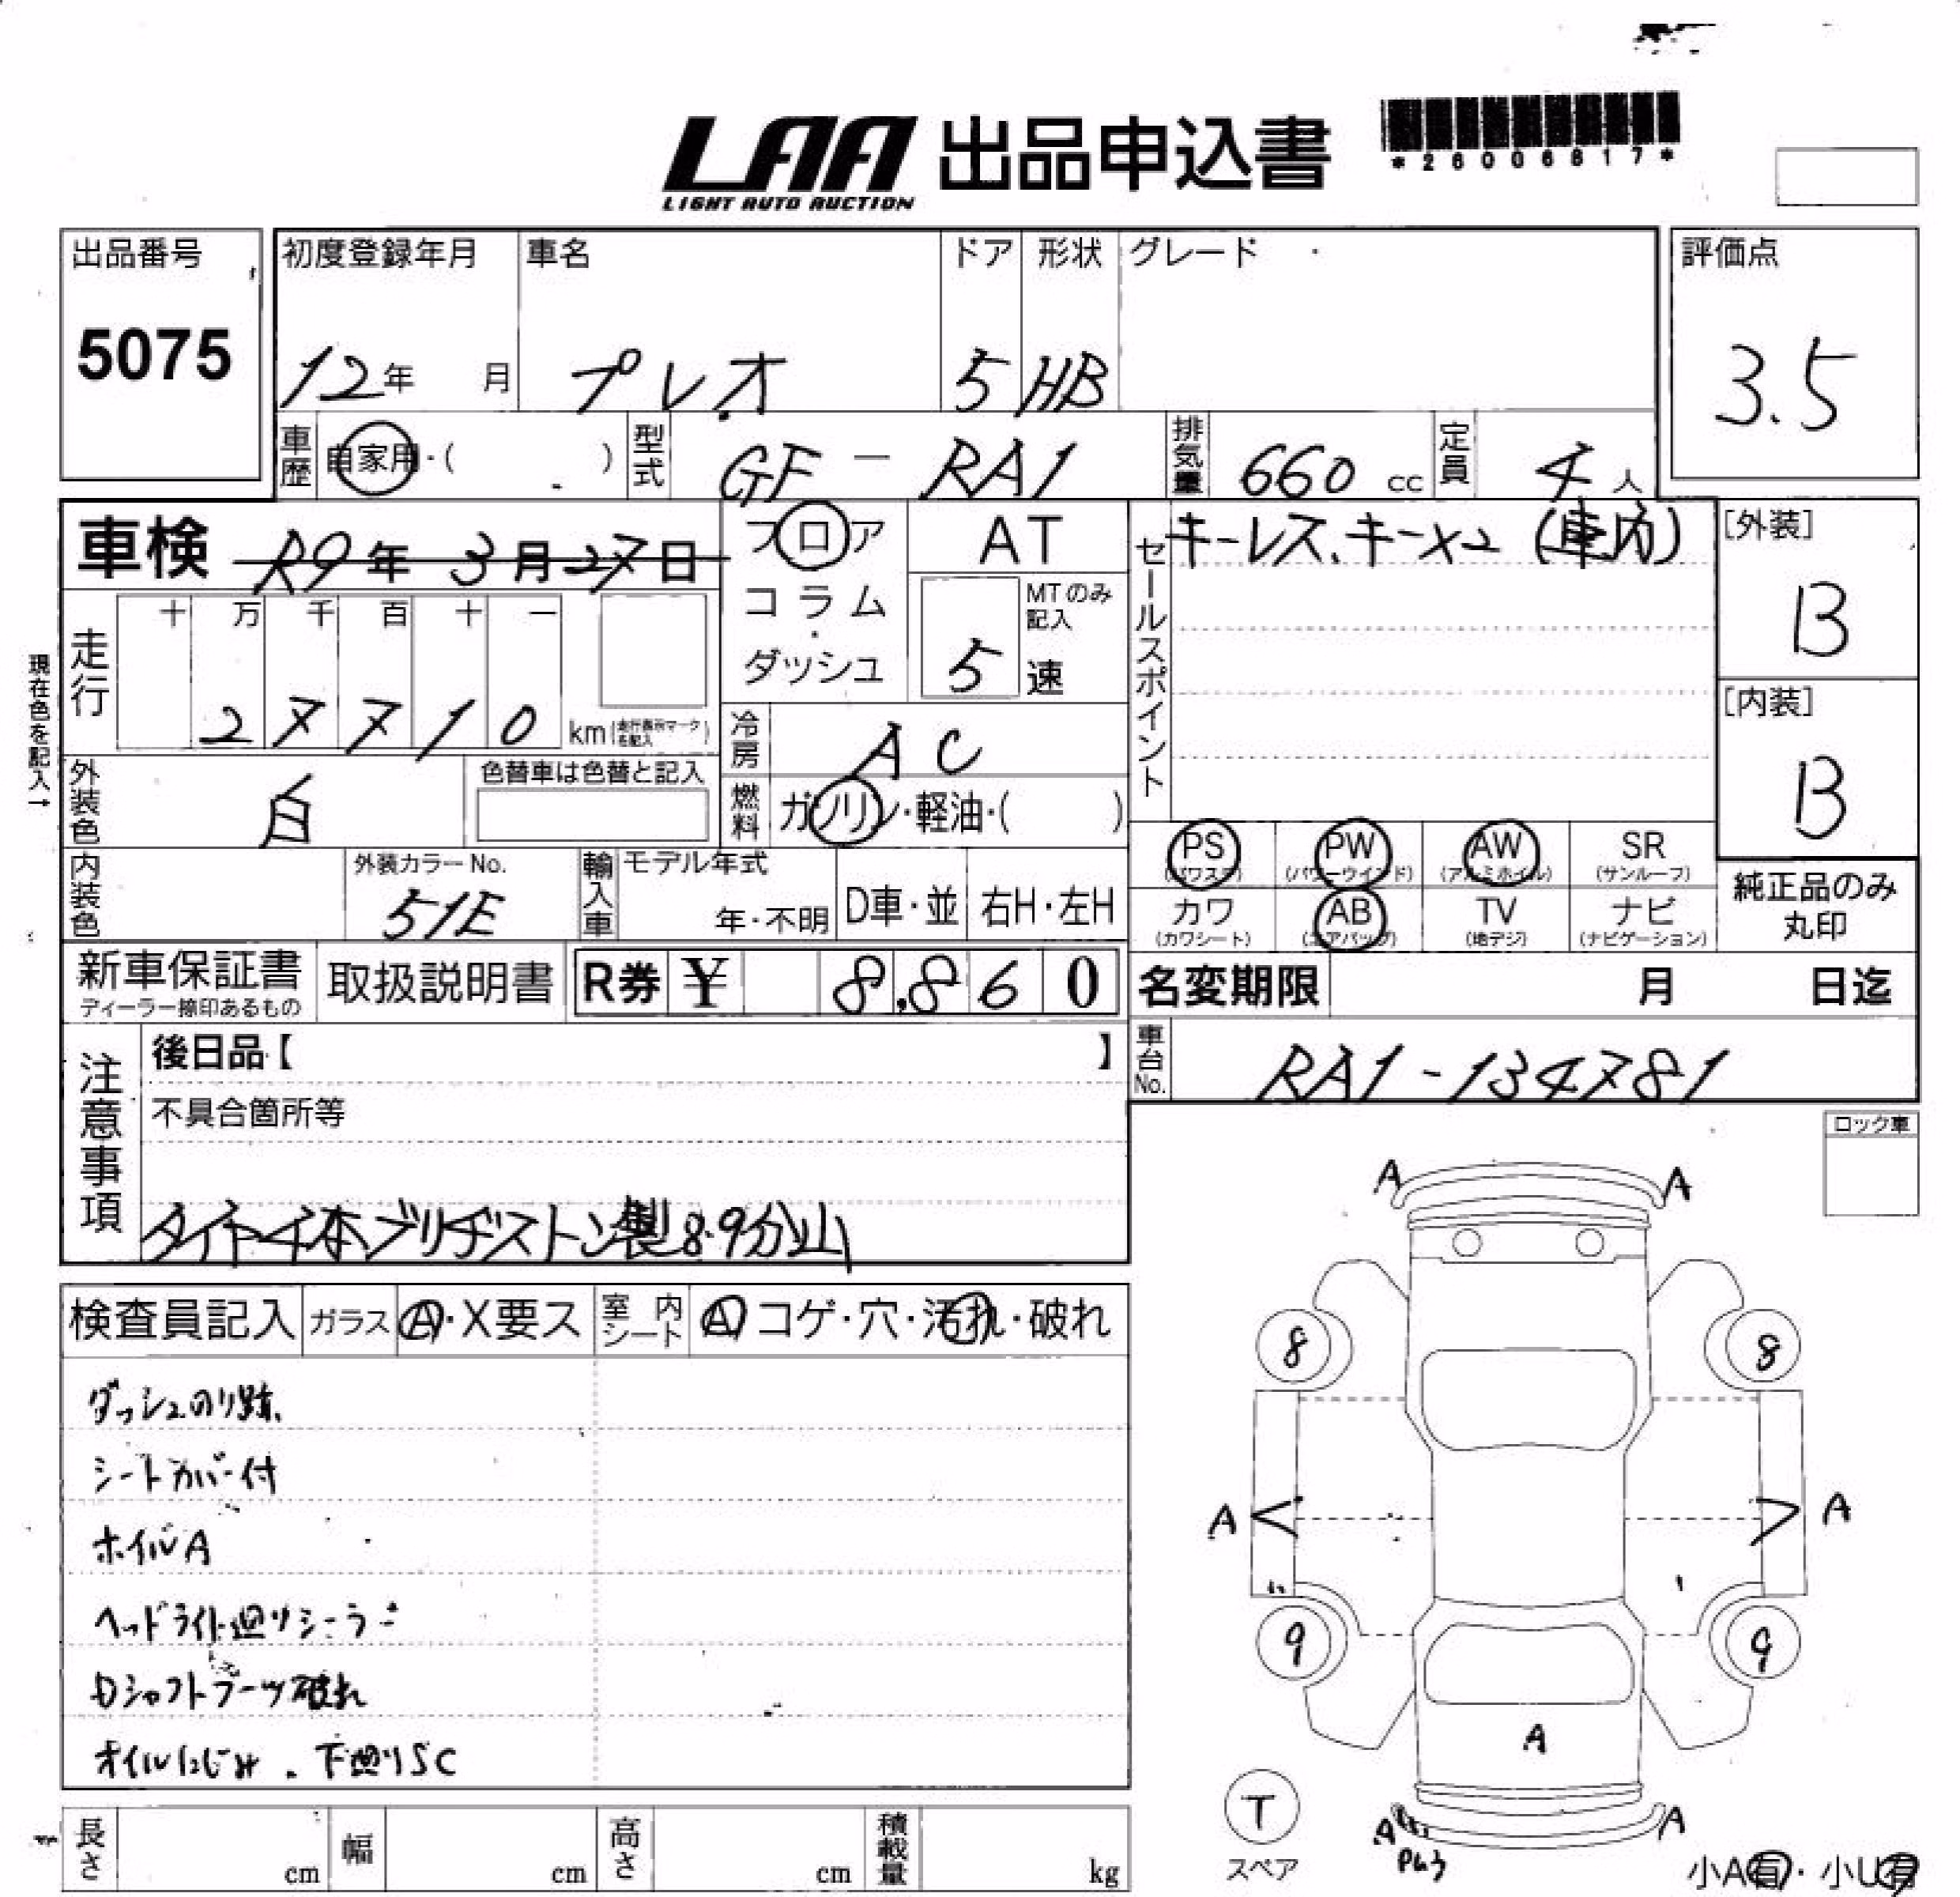 LAA 出品申込書
LIGHT AUTO AUCTION
*26006817*
出品番号
5075
初度登録年月 車名 ドア 形状 グレード 評価点
12年 月 プレオ 5 HB 3.5
車歴 自家用・( ) 型式 GF-RA1 排気量 660cc 定員 4人
車検 R9年 3月27日
フロア
コラム・
ダッシュ
AT
MTのみ記入
5 速
セールスポイント キーレス、キー×2 (車内)
[外装]
B
[内装]
B
現在色を記入→
走行 十 万 千 百 十 一
27710 km(走行表示マークを記入)
冷房 AC
外装色 白 色替車は色替と記入
燃料 ガソリン・軽油・( )
PS (パワステ) PW (パワーウインド) AW (アルミホイル) SR (サンルーフ)
カワ (カワシート) AB (エアバッグ) TV (地デジ) ナビ (ナビゲーション)
純正品のみ
丸印
内装色 外装カラーNo. 51E 輸入車 モデル年式 年・不明 D車・並 右H・左H
新車保証書 ディーラー捺印あるもの 取扱説明書 R券 ¥ 8,860 名変期限 月 日迄
車台No. RA1-134781
注意事項
後日品【 】
不具合箇所等
タイヤ4本ブリヂストン製8.9分山
ロック車
検査員記入 ガラス A・X要ス 室内シート A コゲ・穴・汚れ・破れ
ダッシュのり跡、
シートカバー付
ホイルA
ヘッドライト廻りシーラー
Dシャフトブーツ破れ
オイルにじみ、下廻りSC
A A
8 8
A A
9 9
A
T
スペア
A A
小A有・小U有
長さ cm 幅 cm 高さ cm 積載量 kg